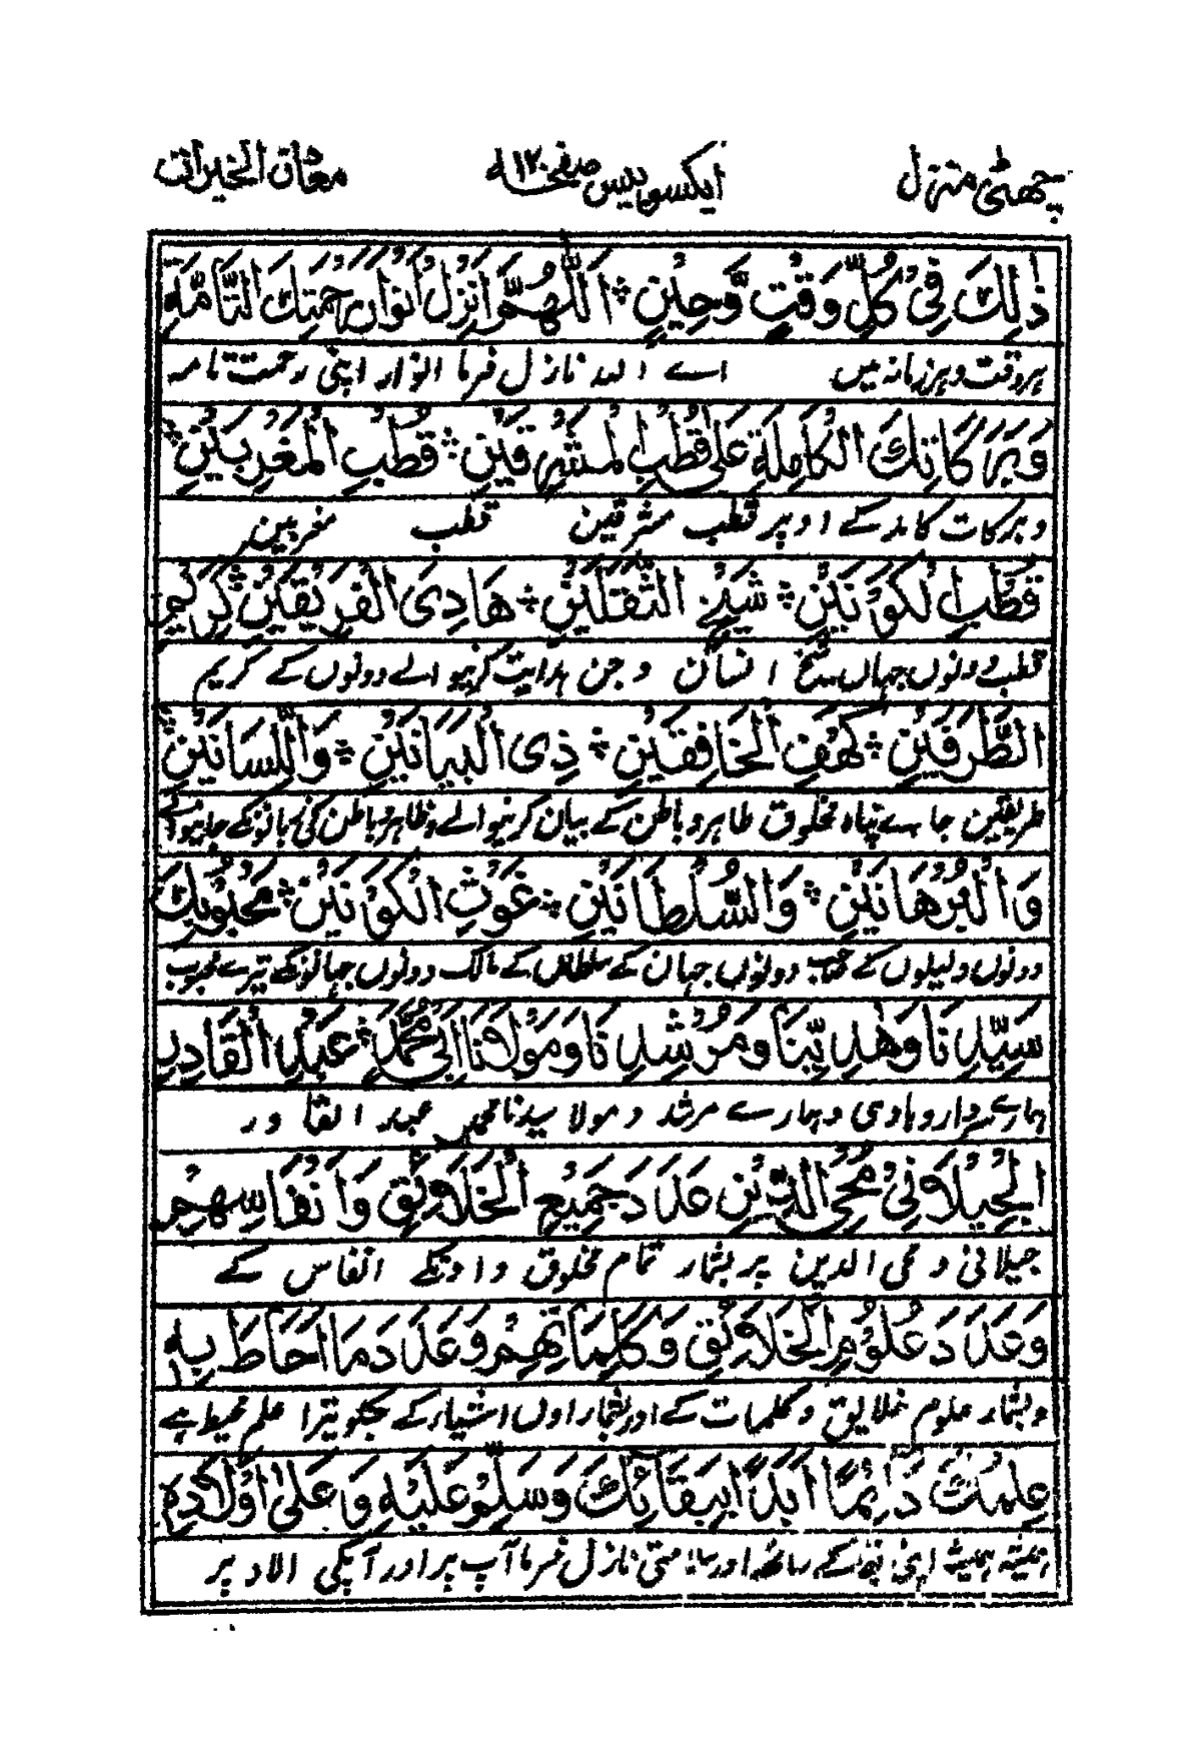 چھٹی منزل ایکسو بیس صفحہ ١٢٠ معدن الخیرات
ذٰلِكَ فِیْ كُلِّ وَقْتٍ وَّحِیْنٍ ؞ اَللّٰهُمَّ اَنْزِلْ اَنْوَارَ رَحْمَتِكَ التَّآمَّةِ
ہر وقت وہر زمانہ میں اے اللہ نازل فرما انوار اپنی رحمت تامہ
وَبَرَكَاتِكَ الْكَامِلَةِ عَلٰی قُطْبِ الْمَشْرِقَیْنِ ؞ قُطْبِ الْمَغْرِبَیْنِ ؞
وبرکات کاملہ کے اوپر قطب مشرقین قطب مغربین
قُطْبِ الْكَوْنَیْنِ ؞ شَیْخِ الثَّقَلَیْنِ ؞ هَادِی الْفَرِیْقَیْنِ ؞ كَرِیْمِ
قطب دونوں جہاں شیخ انسان وجن ہدایت کرنیوالے دونوں کے کریم
الطَّرَفَیْنِ ؞ كَهْفِ الْخَافِقَیْنِ ؞ ذِی الْبَیَانَیْنِ ؞ وَاللِّسَانَیْنِ ؞
طریقین جاے پناہ مخلوق ظاہر وباطن کے بیان کرنیوالے وظاہر وباطن کی زبانونکے جاننے والے
وَالْبُرْهَانَیْنِ ؞ وَالسُّلْطَانَیْنِ ؞ غَوْثِ الْكَوْنَیْنِ ؞ مَحْبُوْبِكَ
دونوں دلیلوں کے دونوں جہان کے سلطان کے مالک دونوں جہانونکے تیرے محبوب
سَیِّدِنَا وَهَادِیْنَا وَمُرْشِدِنَا وَمَوْلَانَا اَبِیْ مُحَمَّدٍ ؞ عَبْدِ الْقَادِرِ
ہمارے سردار وہادی وہمارے مرشد ومولا سیدنا محمد عبد القادر
الْجِیْلَانِیْ مُحْیِ الدِّیْنِ عَدَدَ جَمِیْعِ الْخَلَآئِقِ وَاَنْفَاسِهِمْ
جیلانی ومحی الدین پر بشمار تمام مخلوق واونکے انفاس کے
وَعَدَدَ عُلُوْمِ الْخَلَآئِقِ وَكَلِمَاتِهِمْ وَعَدَدَ مَا اَحَاطَ بِهٖ
وبشمار علوم خلایق وکلمات کے اور بشمار اوں اشیار کے جسکو تیرا علم محیط ہے
عِلْمُكَ دَآئِمًا اَبَدًا بِبَقَآئِكَ وَسَلِّمْ عَلَیْهِ وَعَلٰی اَوْلَادِهٖ
ہمیشہ ہمیشہ اپنی بقا کے ساتھ اور سلامتی نازل فرما آپ پر اور آپکی الاد پر